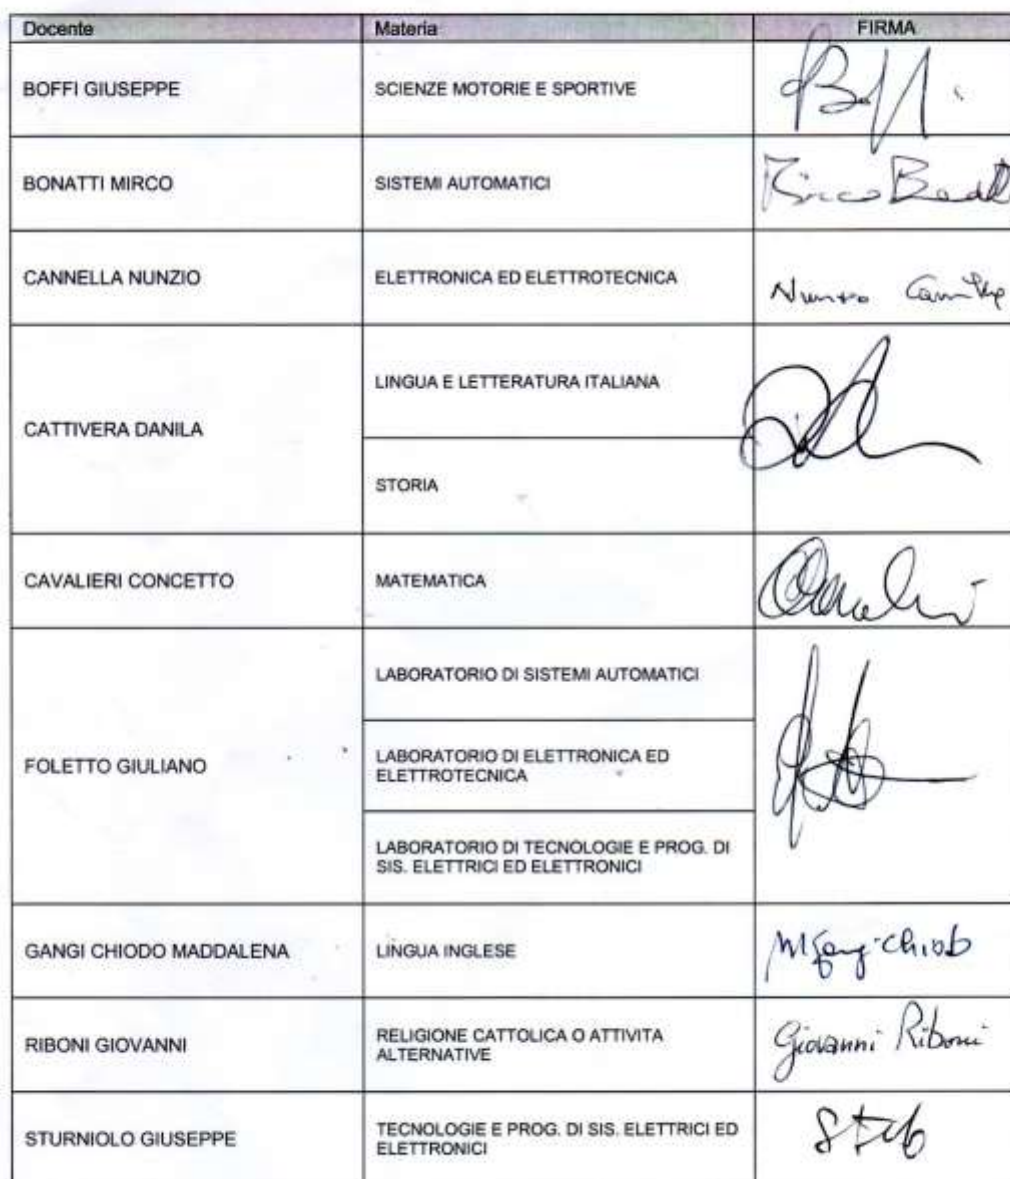 Docente Materia FIRMA
BOFFI GIUSEPPE SCIENZE MOTORIE E SPORTIVE Boffi
BONATTI MIRCO SISTEMI AUTOMATICI
CANNELLA NUNZIO ELETTRONICA ED ELETTROTECNICA Nunzio
CATTIVERA DANILA
LINGUA E LETTERATURA ITALIANA
STORIA
CAVALIERI CONCETTO MATEMATICA
FOLETTO GIULIANO
LABORATORIO DI SISTEMI AUTOMATICI
LABORATORIO DI ELETTRONICA ED
ELETTROTECNICA
LABORATORIO DI TECNOLOGIE E PROG. DI
SIS. ELETTRICI ED ELETTRONICI
GANGI CHIODO MADDALENA LINGUA INGLESE
RIBONI GIOVANNI
RELIGIONE CATTOLICA O ATTIVITA
ALTERNATIVE
Giovanni Riboni
STURNIOLO GIUSEPPE
TECNOLOGIE E PROG. DI SIS. ELETTRICI ED
ELETTRONICI